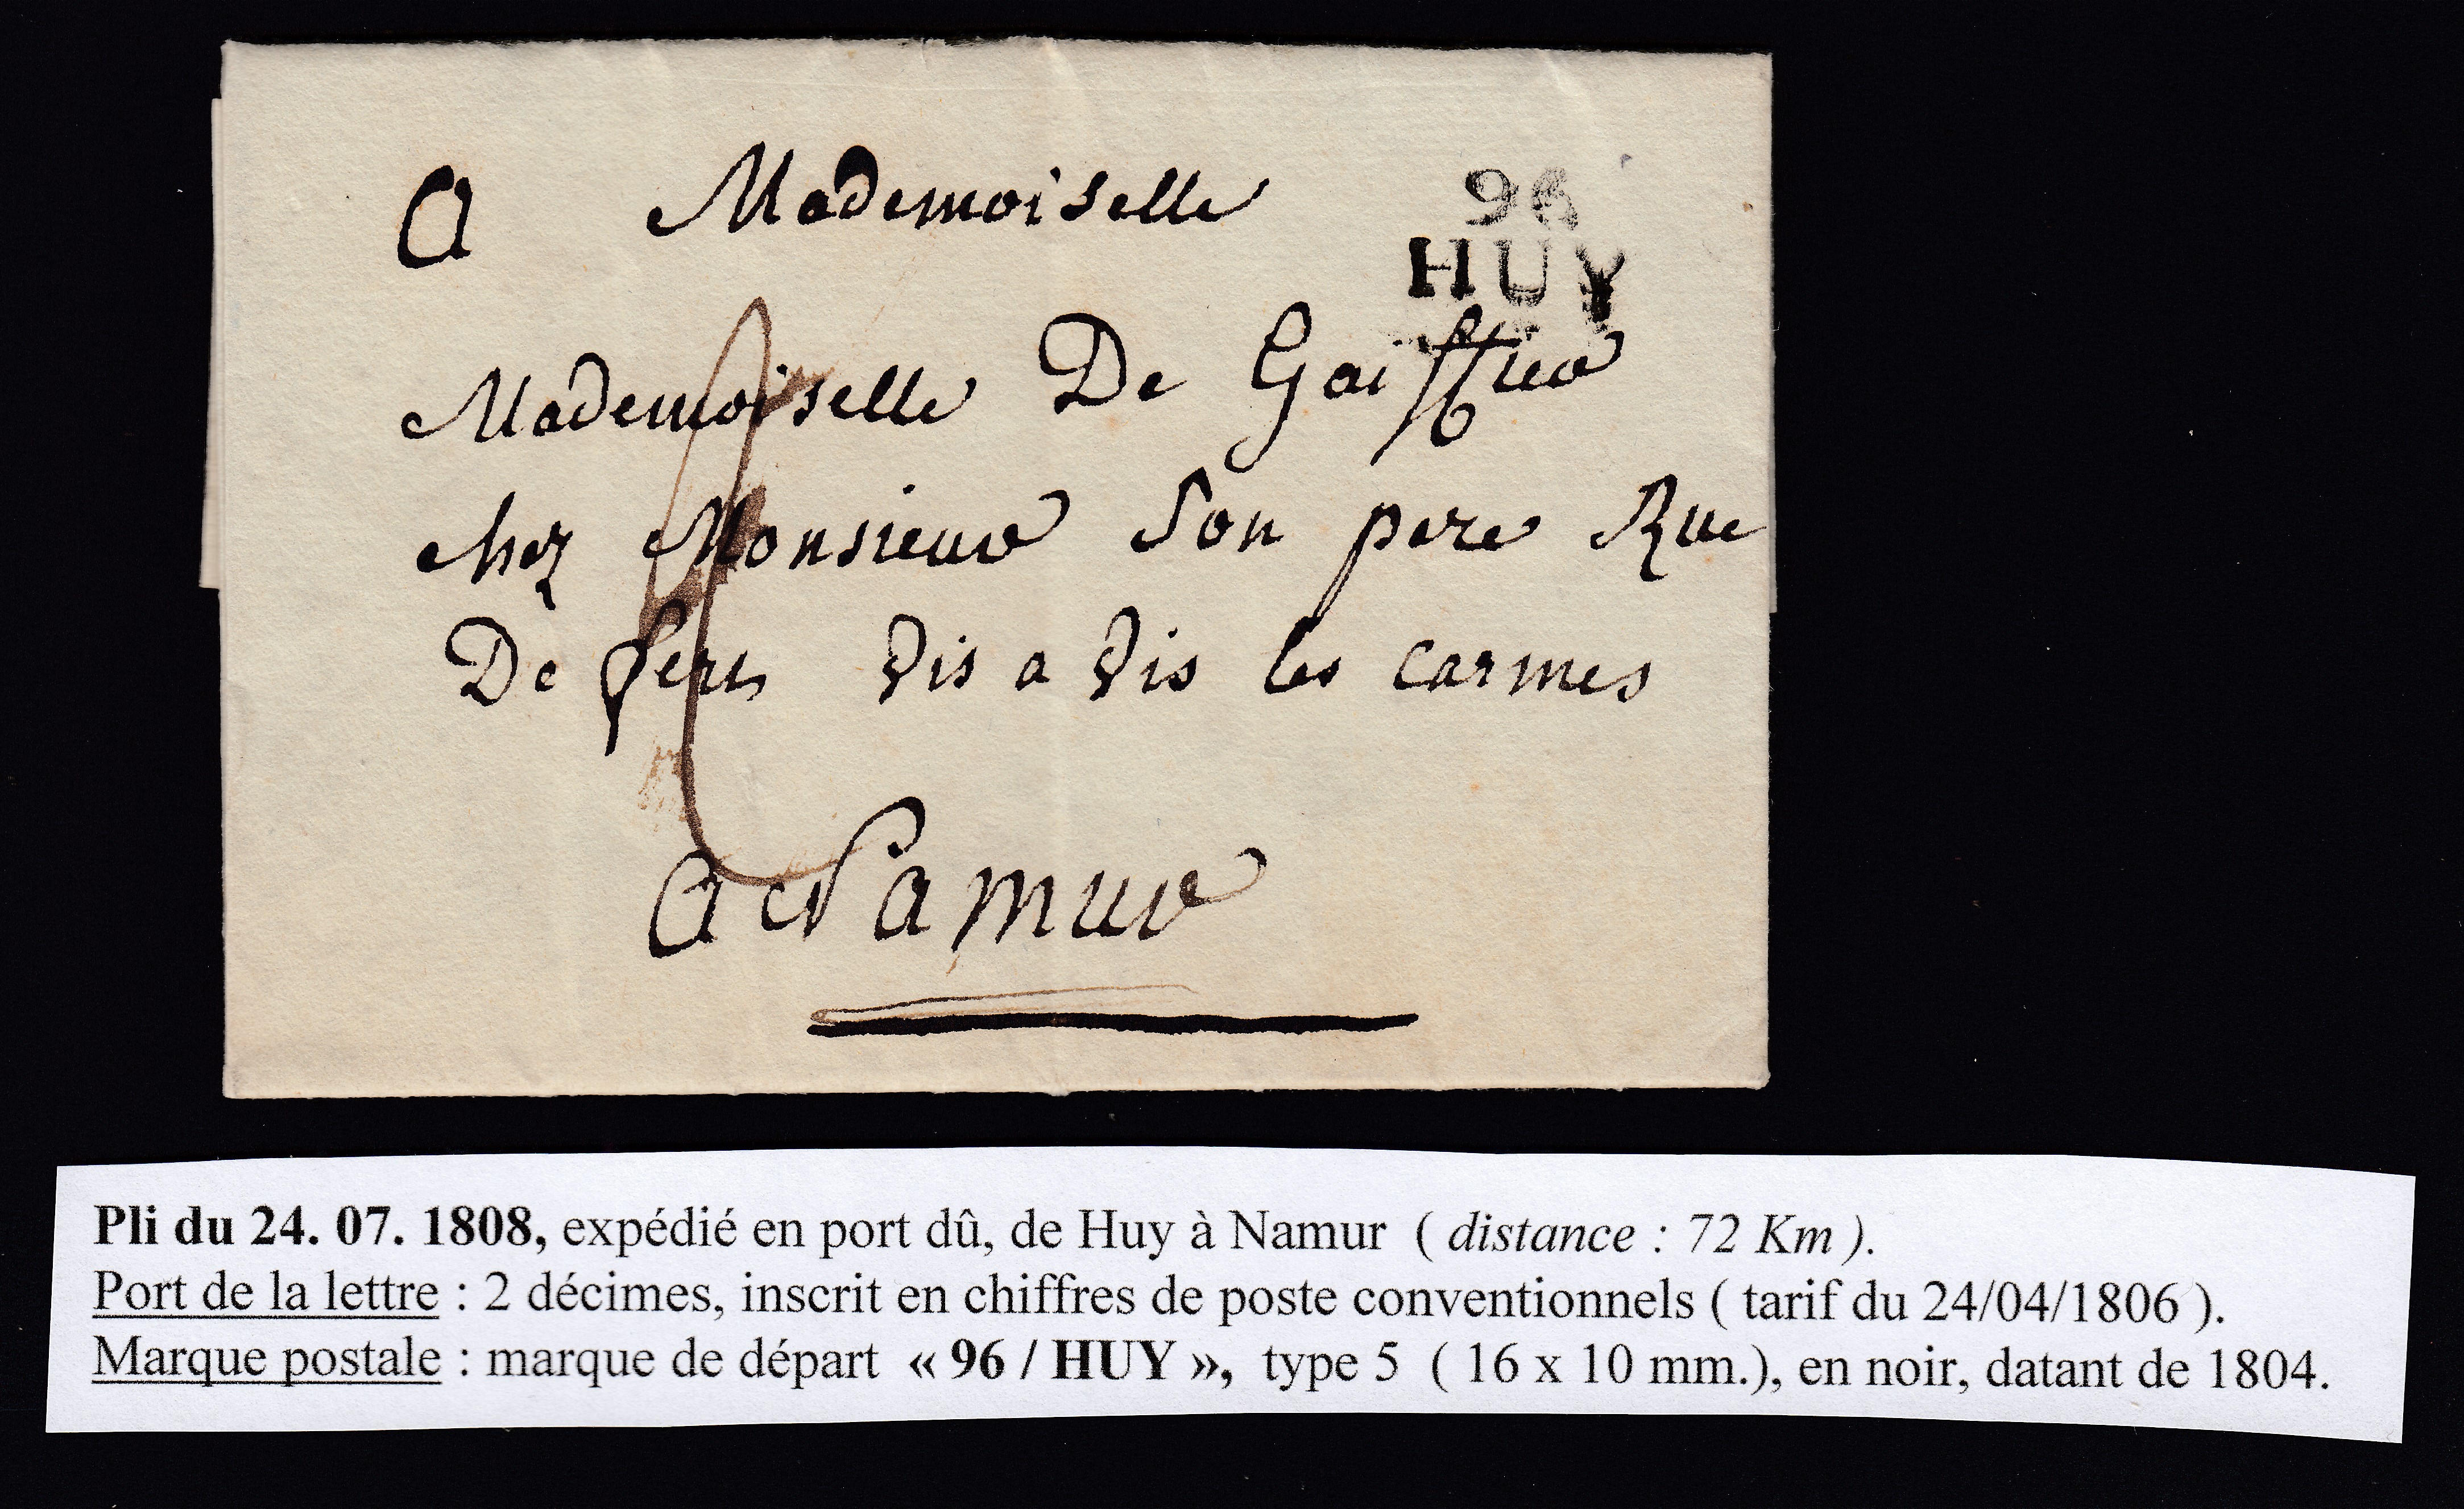 a Mademoiselle
96
HUY
Mademoiselle De Gaiffier
chez Monsieur Son pere Rue
De fers vis a vis les carmes
a Namur
Pli du 24. 07. 1808, expédié en port dû, de Huy à Namur ( distance : 72 Km ).
Port de la lettre : 2 décimes, inscrit en chiffres de poste conventionnels ( tarif du 24/04/1806 ).
Marque postale : marque de départ « 96 / HUY », type 5 ( 16 x 10 mm.), en noir, datant de 1804.